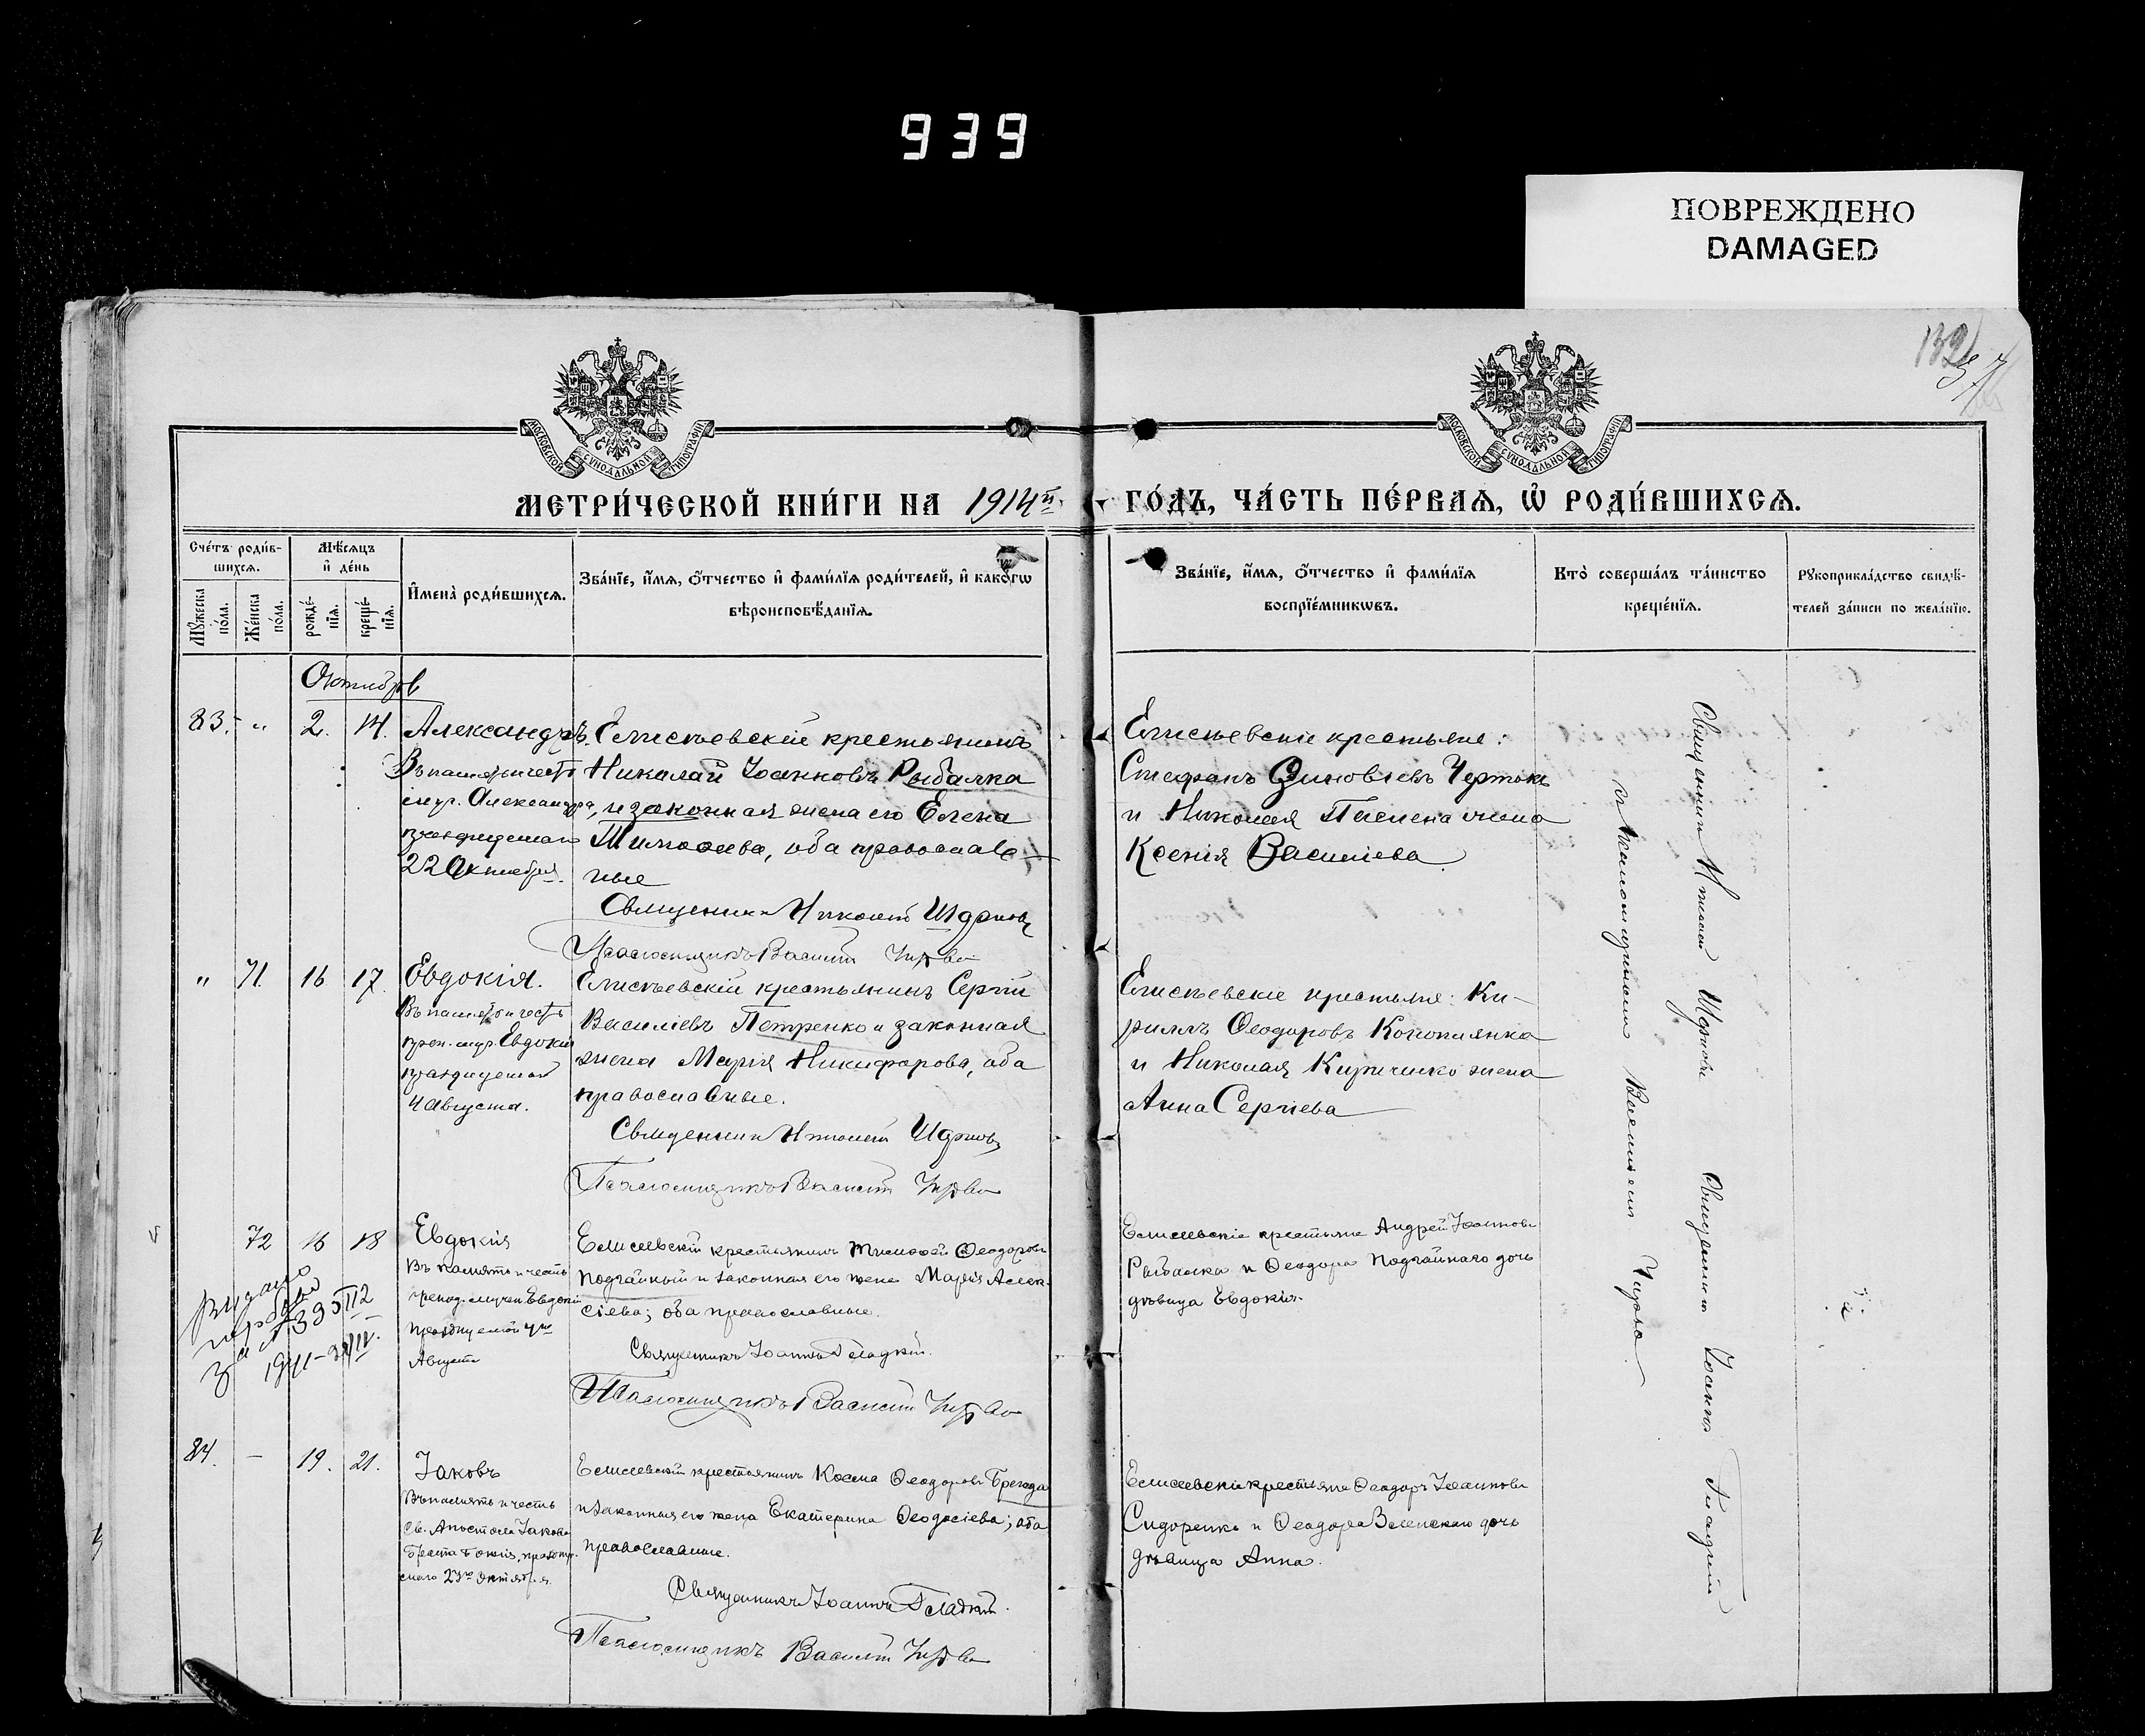 939
ПОВРЕЖДЕНО
DAMAGED
132
МОСКОВСКОЙ СѴНОДАЛЬНОЙ ТИПОГРАФІИ
МОСКОВСКОЙ СѴНОДАЛЬНОЙ ТИПОГРАФІИ
МЕТРИ́ЧЕСКОЙ КНИ́ГИ НА 1914й
ГО́ДЪ, ЧА́СТЬ ПЕ́РВАѦ, Ѡ҆ РОДИ́ВШИХСѦ.
Сче́тъ роди́в-
шихсѧ.
Мꙋ́жеска по́ла.
Же́нска по́ла.
Мѣ́сѧцъ
и҆ де́нь
рожде́-
нїѧ.
креще́-
нїѧ.
И҆мена̀ роди́вшихсѧ.
Зва́нїе, и҆́мѧ, ѻ҆́тчество и҆ фами́лїѧ роди́телей, и҆ како́гѡ
вѣроисповѣ́данїѧ.
Зва́нїе, и҆́мѧ, ѻ҆́тчество и҆ фами́лїѧ
воспрїе́мникѡвъ.
Кто̀ соверша́лъ та́инство
креще́нїѧ.
Рꙋкоприкла́дство свидѣ́-
телей за́писи по жела́нїю.
Октябрь
83. " 2. 14. Александръ.
Въ память и честь
муч. Александра,
празднуемаго
22 Октября.
Елисѣевскій крестьянинъ
Николай Іоанновъ Рыбалка
и законная жена его Елена
Тимоѳеева, оба православ-
ные
Священникъ Николай
Псаломщикъ Василій
Елисѣевскіе крестьяне:
Стефанъ Зиновіевъ Чертокъ
и Николая жена
Ксенія Василіева
" 71. 16 17. Евдокія.
Въ память и честь
преп. муч. Евдокіи
празднуемой
4 Августа.
Елисѣевскій крестьянинъ Сергій
Василіевъ Петренко и законная
жена Марія Никифорова, оба
православные.
Священникъ Николай
Псаломщикъ Василій
Елисѣевскіе крестьяне: Ки-
риллъ Ѳеодоровъ Коноплянка
и Николая Кириченко жена
Анна Сергіева
72 16 18 Евдокія
Въ память и честь
препод. мучен. Евдокіи
празднуемой 4го
Августа
Елисеевскій крестьянинъ Тимоѳей Ѳеодоровъ
Подгайный и законная его жена Марія Алек-
сіева; оба православные.
Священникъ Іоаннъ Гладкій.
Псаломщикъ Василій
Елисеевскіе крестьяне Андрей Іоанновъ
Рыбалка и Ѳеодора Подгайнаго дочь
дѣвица Евдокія.
84. – 19. 21. Іаковъ
Въ память и честь
Св. Апостола Іакова
брата Божія, праздну-
емаго 23го Октября.
Елисеевскій крестьянинъ Косма Ѳеодоровъ Брегеда
и законная его жена Екатерина Ѳеодосіева; оба
православные.
Священникъ Іоаннъ Гладкій.
Псаломщикъ Василій
Елисеевскіе крестьяне Ѳеодоръ Іоанновъ
Сидоренко и Ѳеодора дочь
дѣвица Анна.
Священникъ Николай
съ псаломщикомъ Василіемъ
Священникъ Іоаннъ Гладкій